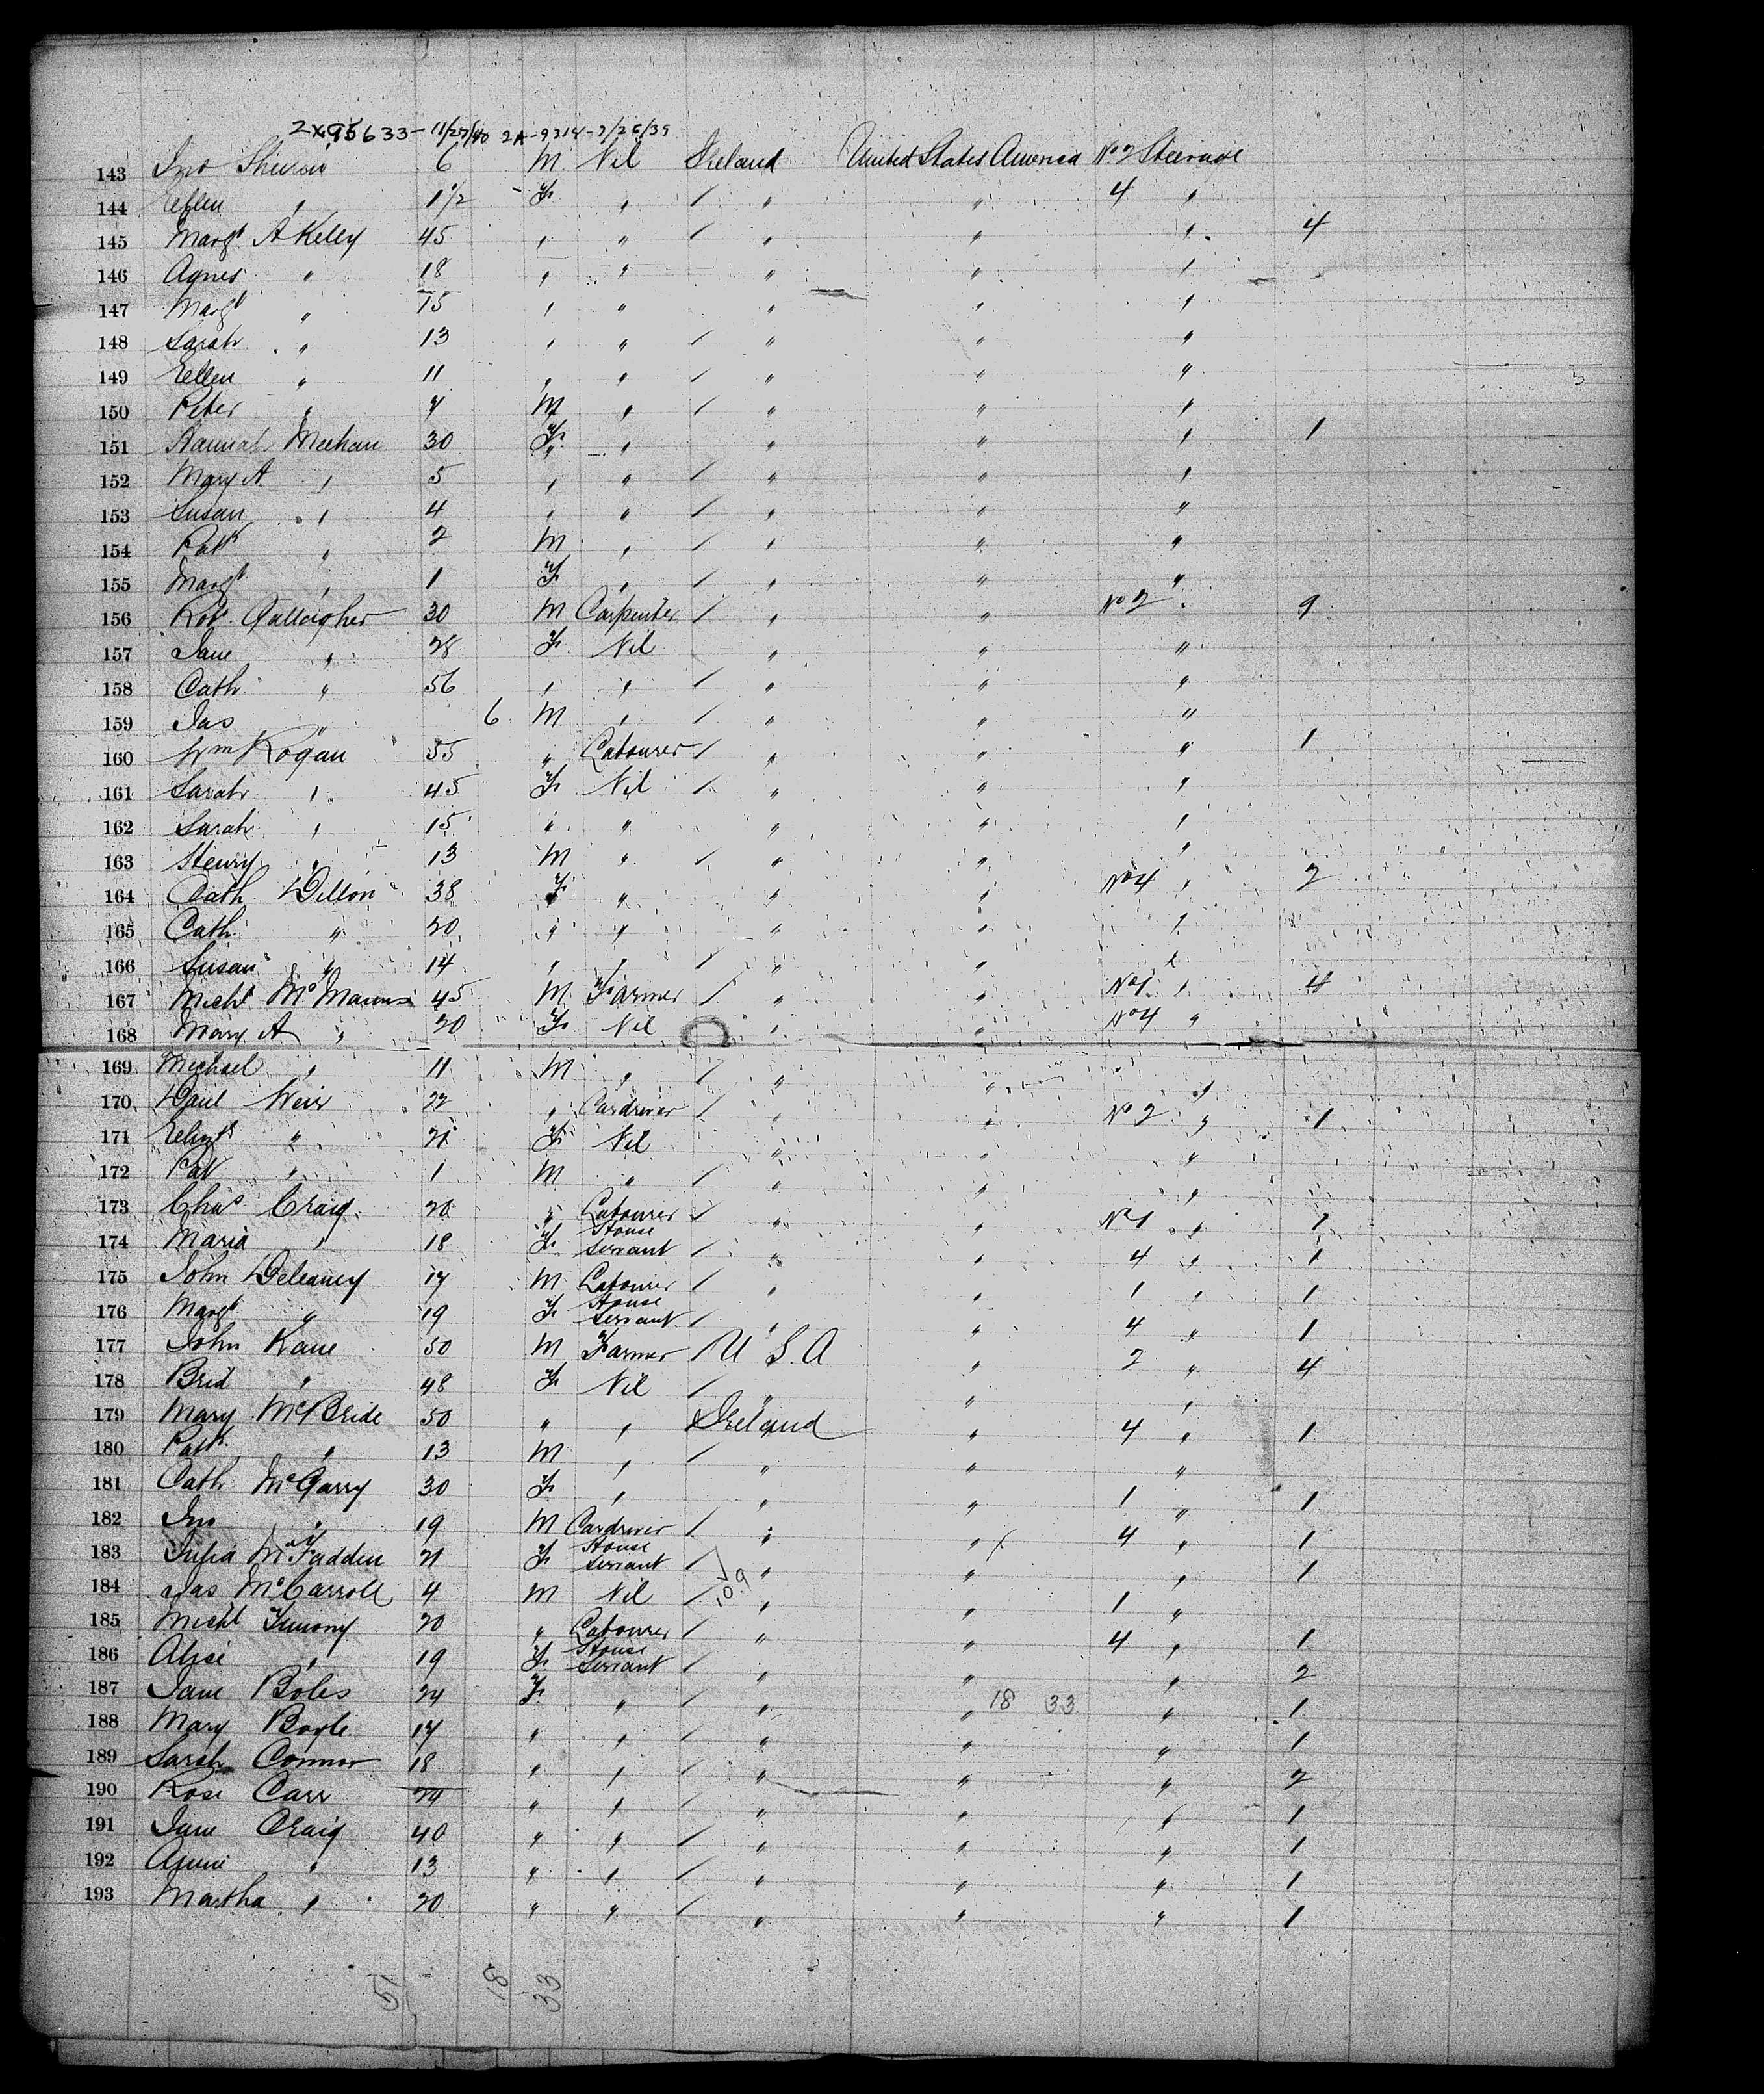 2X95633-11/27/40 2A-9314-7/26/39
143 Jno 6 M Nil Ireland United States America No 2 Steerage
144 Ellen " 1 1/2 F " / " " 4 "
145 Margt A Kelly 45 " " / " " " 4
146 Agnes " 18 " " " " "
147 Margt " 15 " " " " "
148 Sarah " 13 " " / " " "
149 Ellen " 11 " " / " " "
150 Peter " 7 M " / " " "
151 Hannah Meehan 30 F " " " " 1
152 Mary A " 5 " " / " " "
153 Susan " 4 " " / " " "
154 Patk " 2 M " / " " "
155 Margt " 1 F " / " " "
156 Robt Gallaigher 30 M Carpenter / " " No 2 " 9
157 Jane " 28 F Nil " " "
158 Cath " 56 " " / " " "
159 Jas " 6 M " / " " "
160 Wm Kogan 55 " Labourer / " " " 1
161 Sarah " 45 F Nil / " " "
162 Sarah " 15 " " " " "
163 Henry " 13 M " / " " "
164 Cath Dillon 38 F " " " No 4 " 2
165 Cath " 20 " " " " "
166 Susan " 14 " " / " " "
167 Michl McManus 45 M Farmer / " " No 1 " 4
168 Mary A " 20 F Nil " " No 4 "
169 Michael " 11 M " / " " "
170 Danl Weir 22 " Cardriver / " " No 2 " 1
171 Elizth " 21 F Nil " " "
172 Pat " 1 M " / " " "
173 Chas Craig 20 " Labourer / " " No 1 " 1
174 Maria " 18 F House Servant / " " 4 " 1
175 John Deleaney 17 M Labourer / " " 1 " 1
176 Margt " 19 F House Servant / " " 4 " 1
177 John Kane 50 M Farmer / U S A " 2 " 4
178 Brid " 48 F Nil / " " "
179 Mary McBride 50 " " Ireland " 4 " 1
180 Patk " 13 M " / " " "
181 Cath McGarry 30 F " " " 1 " 1
182 Jno " 19 M Cardriver / " " 4 " 1
183 Julia McFadden 21 F House Servant / " " " 1
184 Jas McCarroll 4 M Nil / " " 1 "
185 Michl Timony 20 " Labourer / " " 4 " 1
186 Alice " 19 F House Servant / " " " 2
187 Jane Boles 24 F " / " " 18 33 " 1
188 Mary Boyle 17 " " / " " " 1
189 Sarah Connor 18 " " / " " " 2
190 Rose Carr 24 " " / " " " 1
191 Jane Craig 40 " " / " " " 1
192 Annie " 13 " " / " " " 1
193 Martha " 20 " " / " " " 1
51 18 33